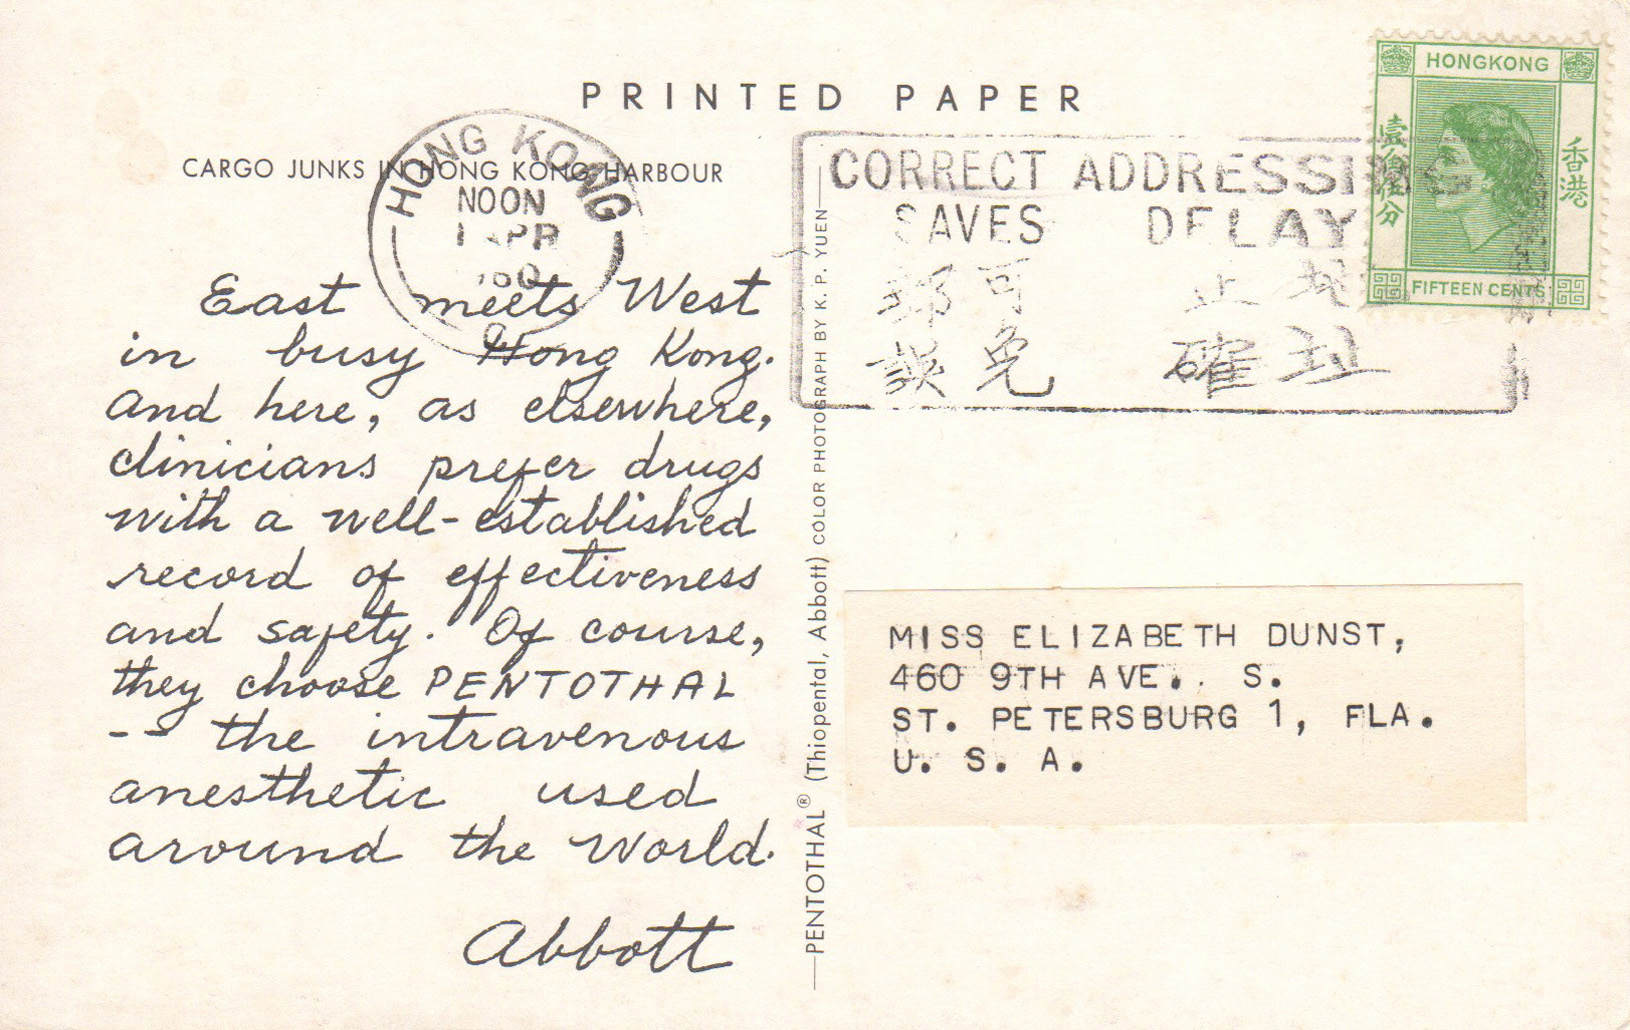 PRINTED PAPER
CARGO JUNKS IN HONG KONG HARBOUR
HONG KONG
NOON
1 APR
60
East meets West
in busy Hong Kong.
And here, as elsewhere,
clinicians prefer drugs
with a well-established
record of effectiveness
and safety. Of course,
they choose PENTOTHAL
-- the intravenous
anesthetic used
around the World.
Abbott
PENTOTHAL® (Thiopental, Abbott) COLOR PHOTOGRAPH BY K. P. YUEN
CORRECT ADDRESSING
SAVES DELAY
郵可 止地
誤免 確址
HONGKONG
香港
FIFTEEN CENTS
MISS ELIZABETH DUNST,
460 9TH AVE. S.
ST. PETERSBURG 1, FLA.
U. S. A.